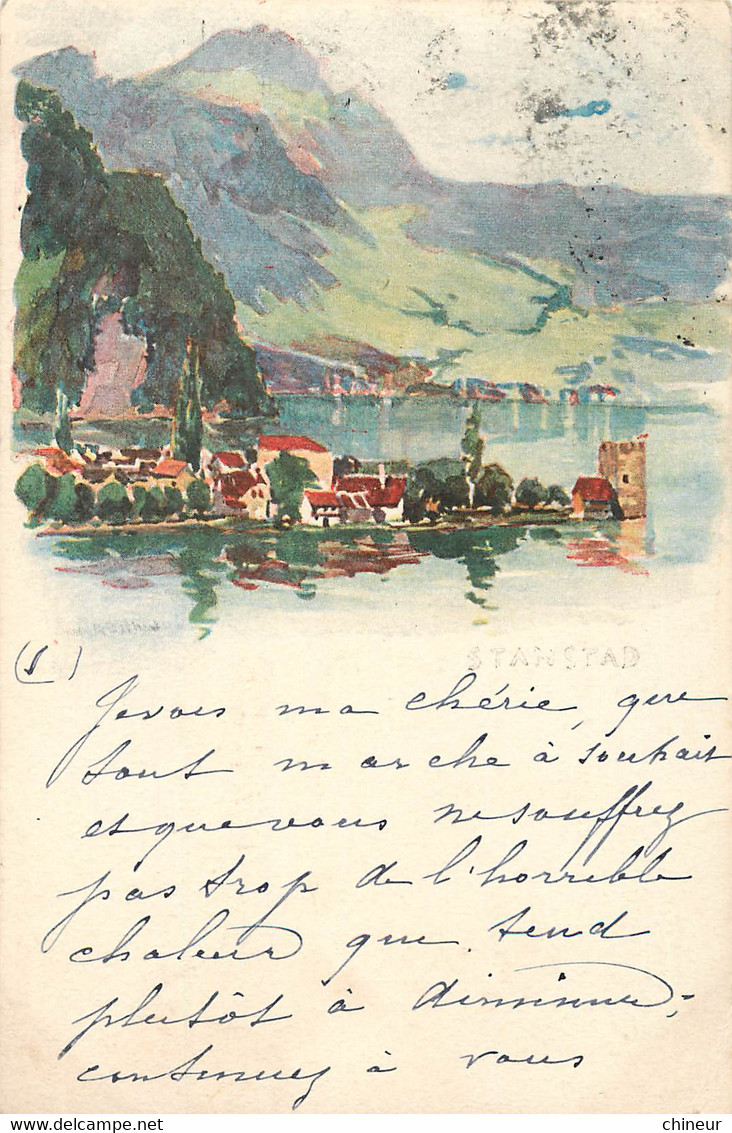 STANSTAD
(1)
Je vois ma chérie, que
tout marche à souhait
et que vous ne souffrez
pas trop de l'horrible
chaleur qui tend
plutôt à diminuer;
continuez à vous
chineur
delcampe.net